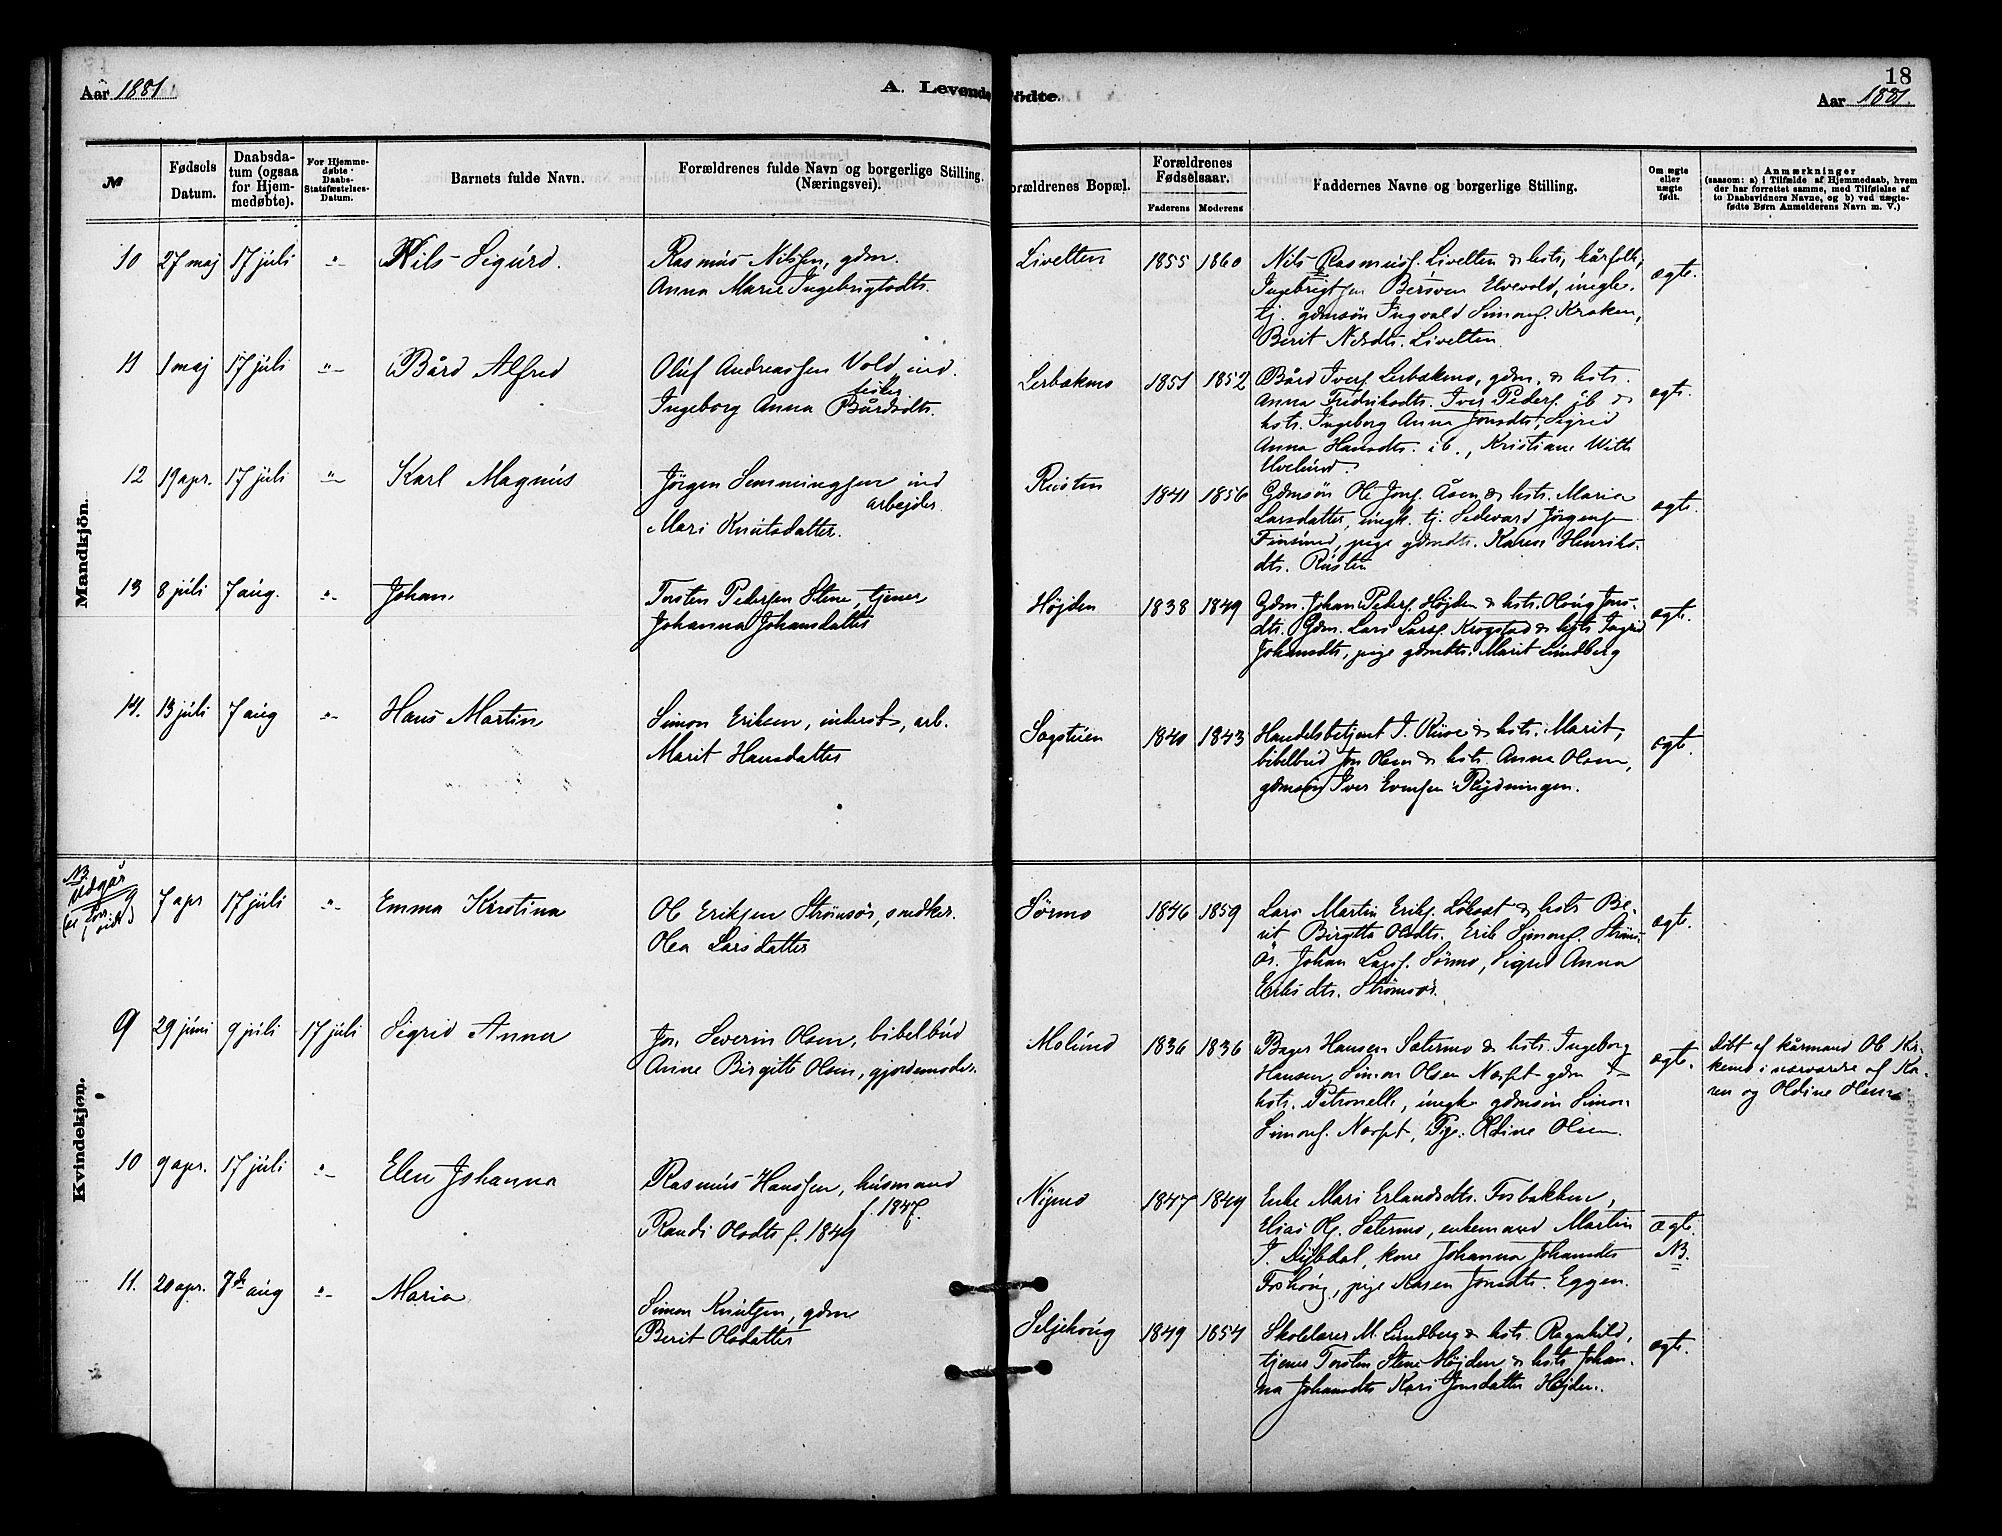 Aar 1881.
A. Levende Fødte.
18
Aar 1881.
№
Fødsels Datum.
Daabsdatum (ogsaa for Hjemmedøbte).
For Hjemmedøbte Daabs-Stadfæstelses-Datum.
Barnets fulde Navn.
Forældrenes fulde Navn og borgerlige Stilling (Næringsvei).
Forældrenes Bopæl.
Forældrenes Fødselsaar.
Faderens
Moderens
Faddernes Navne og borgerlige Stilling.
Om ægte eller uægte født.
Anmærkninger
(saasom: a) i Tilfælde af Hjemmedaab, hvem
der har forrettet samme, med Tilføielse af
to Daabsvidners Navne, og b) ved uægte-
fødte Børn Anmelderens Navn m. V.)
Mandkjön.
10 27 maj 17 juli " Nils Sigurd.
Rasmus Nilssen, gdm.
Anna Marie Ingebrigtsdtr.
Livelten 1855 1860
Nils Rasmusf. Livelten & hstr, kårfolk,
Ingebrigtsen Bersven Elvevold, ungk.
tj. gdmsøn Ingvald Simonf. Kroken,
Berit Nilsdtr. Livelten.
ægte.
11 1 maj 17 juli " Bård Alfred
Oluf Andreassen Vold, ind.
Ingeborg Anna Bårdsdtr.
Lerbakmo 1851 1852
Bård Iverf. Lerbakmo, gdm. & hstr.
Anna Fredriksdtr. Iver Pederf. ib &
hstr. Ingeborg Anna Jonsdtr, Sigrid
Anna Hansdtr. ib., Kristiane With
ægte.
12 19 apr. 17 juli " Karl Magnus
Jörgen Simmingsen ind
arbejder.
Mari Knutsdatter.
Rusten 1841 1856
Gdmsön Ole Jonf. Åsen & hstr. Maria
Larsdatter, ungk. tj. Sedevard Jörgenf
Finsund, pige gdmdtr. Karen Henriks-
dtr. Rusten
ægte.
13 8 juli 7 aug. " Johan.
Torsten Pedersen Stene, tjener
Johanna Johansdatter
Højden 1838 1849
Gdm. Johan Pederf. Højden & hstr. Olöug Jons-
dtr. Gdm. Lars Larsf. Krogstad & hstr Ingrid
Johansdtr, pige gdmdtr. Marit Lundberg
ægte.
14. 13 juli 7 aug " Hans Martin
Simon Eriksen, inderst, arb.
Marit Hansdatter
Sagstuen 1840 1843
Handelsbetjent I. Ruve & hstr. Marit,
bibelbud Jon Olsen & hstr. Anna Olsen,
gdmsön Iver Evensen Rydningen.
ægte.
Kvindekjön.
NB.
Udgår
9 7 apr 17 juli " Emma Kirstina
Ole Eriksen Strömsör, snedker.
Olea Larsdatter
Sörmo 1846 1859
Lars Martin Erikf. Löksat & hstr Be-
rit Birgitta Olsdtr. Erik Simonf. Ströms-
ör. Johan Larsf. Sörmo, Sigrid Anna
Eriksdtr. Strömsör.
ægte.
9 29 juni 9 juli 17 juli Sigrid Anna
Jon Severin Olsen, bibelbud
Anne Birgitte Olsen, gjordemoder.
Molund 1836 1836
Bager Hansen Sætermo & hstr. Ingeborg
Hansen, Simon Olsen Næset gdm &
hstr. Petronelle, ungk. gdmsön Simon
Simonf. Næset, Pige: Oldine Olsen.
ægte.
Döbt af kårmand Ole Kir-
kemo i nærværelse af Ka-
ren og Oldine Olsen
10 9 apr. 17 juli " Elen Johanna
Rasmus Hanssen, husmand
f. 1847.
Randi Olsdtr f. 1849
Nymo 1847 1849
Enke Mari Erlandsdtr. Fosbakken,
Elias Olf. Sætermo, enkemand Martin
I. Dybdal, kone Johanna Johansdtr
Foshöug, pige Karen Jonsdtr. Eggen.
ægte.
NB.
11. 20 apr. 7de aug " Maria
Simon Knutsen, gdm
Berit Olsdatter
Seljehoug 1849 1854
Skolelærer M. Lundberg & hstr. Ragnhild,
tjener Torsten Stene Højden & hstr. Johan-
na Johansdtr Kari Jonsdatter Højden.
ægte.